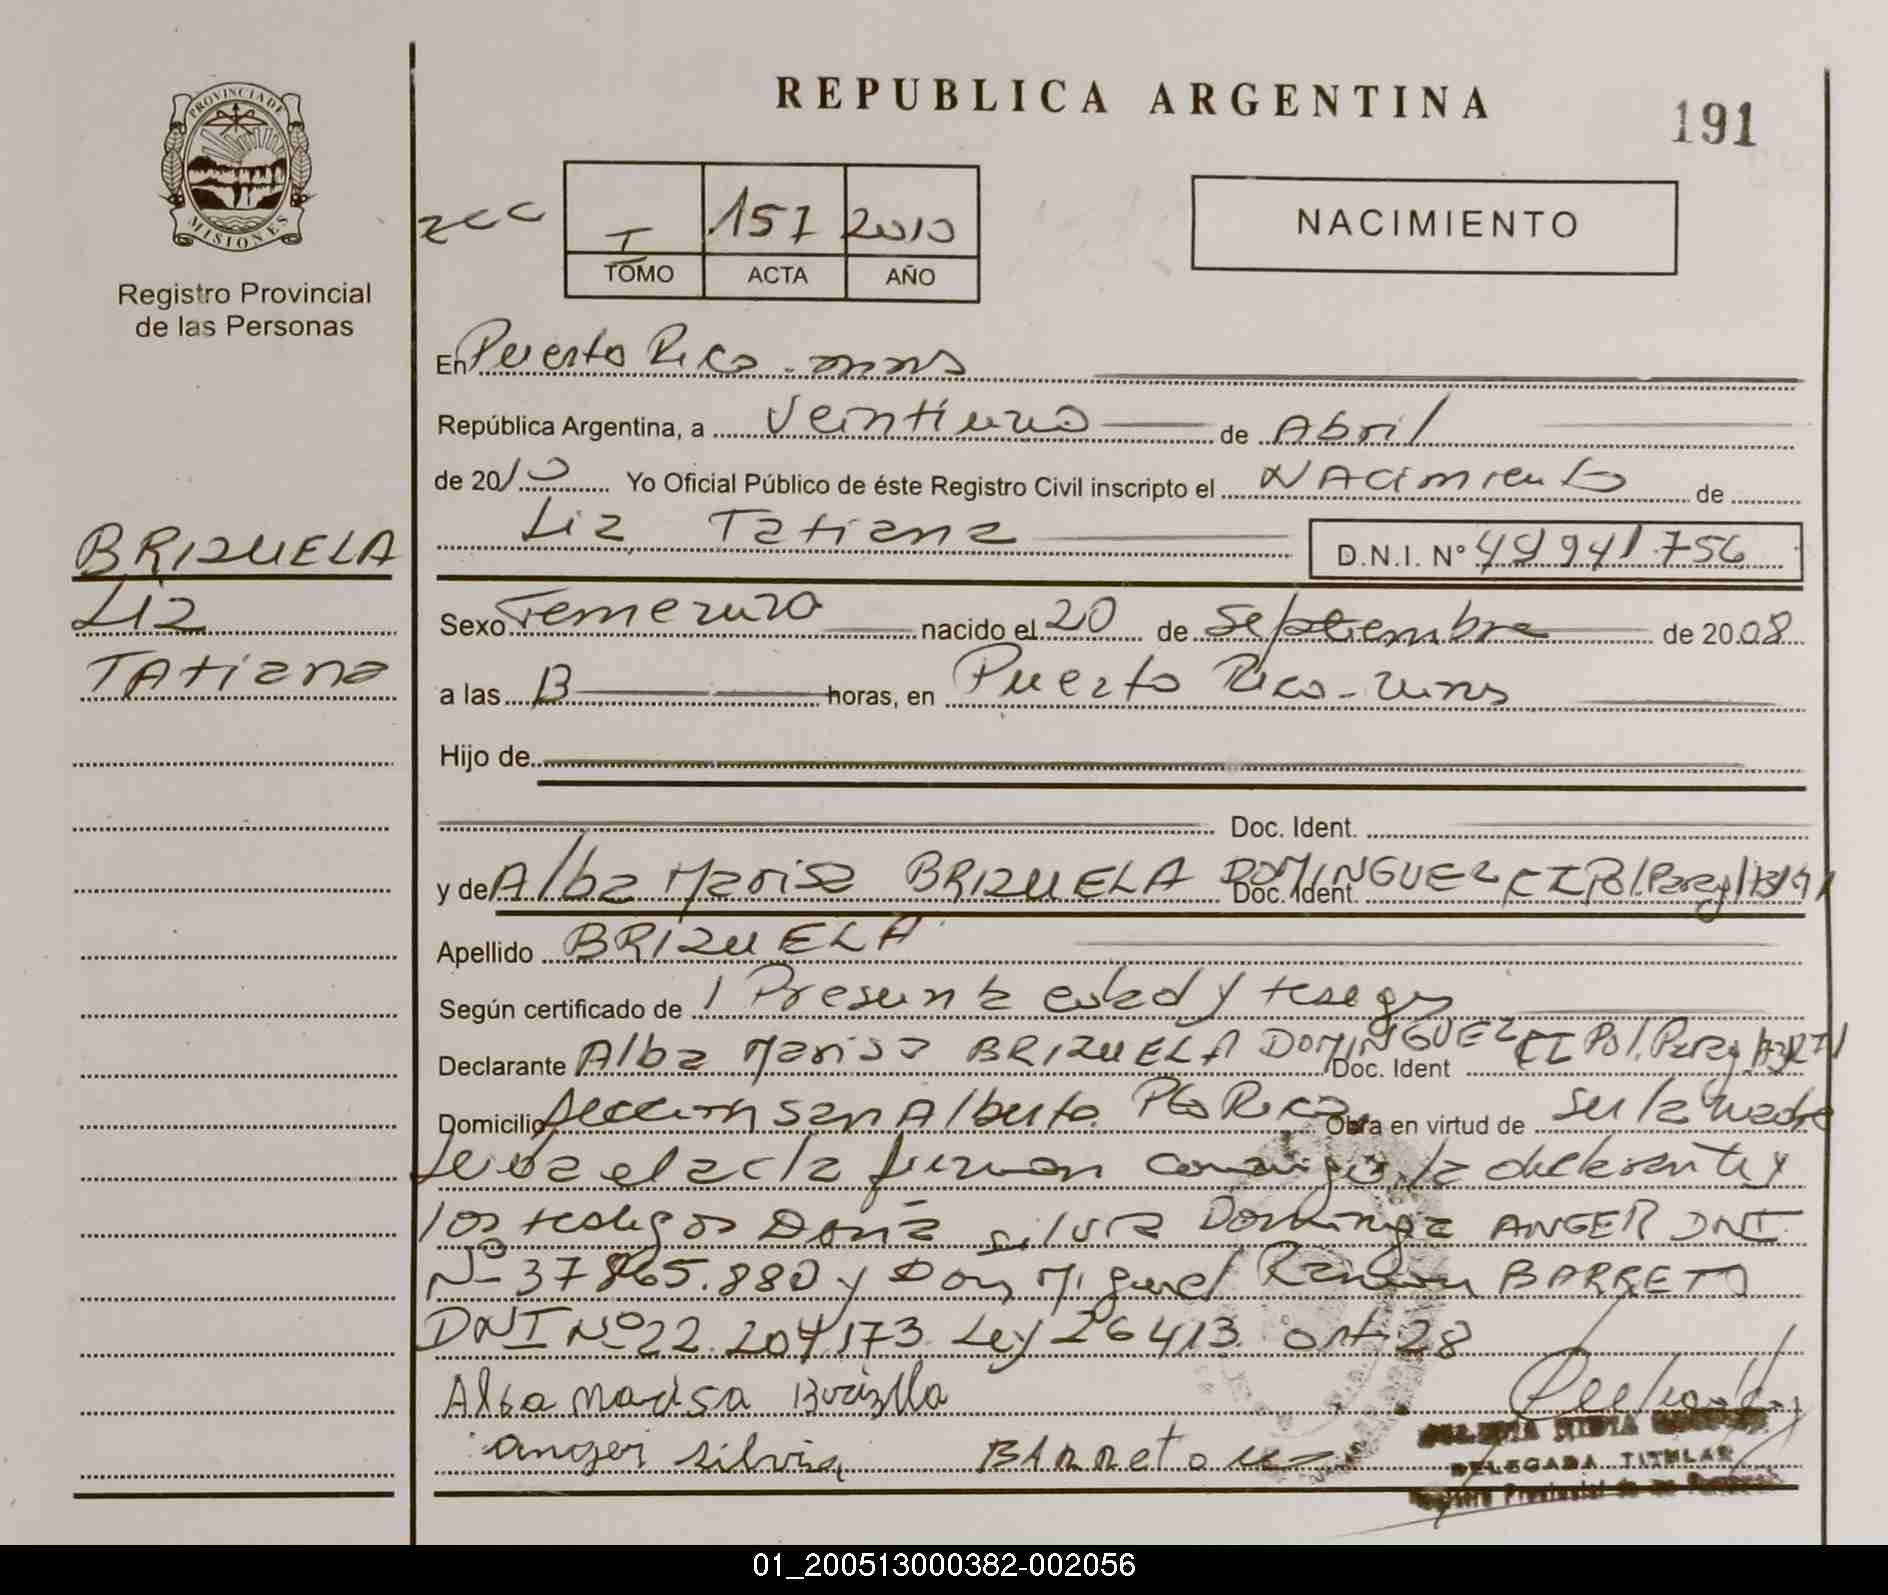 REPUBLICA ARGENTINA
191
PROVINCIA DE MISIONES
Registro Provincial
de las Personas
T 157 2010
TOMO ACTA AÑO
NACIMIENTO
En Puerto Rico - mns
República Argentina, a Veintiuno de Abril
de 2010 Yo Oficial Público de éste Registro Civil inscripto el Nacimiento de
Liz Tatiana D.N.I. Nº 49941756
BRIZUELA
Liz
Tatiana
Sexo Femenino nacido el 20 de septiembre de 2008
a las 13 horas, en Puerto Rico - mns
Hijo de
Doc. Ident.
y de Alba Marisa BRIZUELA DOMINGUEZ Doc. Ident. CI Pol. Parag
Apellido BRIZUELA
Según certificado de 1 Presunta edad y testigos
Declarante Alba Marisa BRIZUELA DOMINGUEZ Doc. Ident CI Pol. Parag
Domicilio San Alberto Pto Rico Obra en virtud de ser la madre
Leida el acta firman conmigo la declarante y
los testigos Doña Silvia Dominga ANGER DNI
Nº 37865.880 y Don Miguel Ramon BARRETO
DNI Nº 22.204173 Ley 26413 art 28
Alba Marisa Brizuela
anger silvia Barreto
DELEGADA TITULAR
Registro Provincial de las Personas
01_200513000382-002056